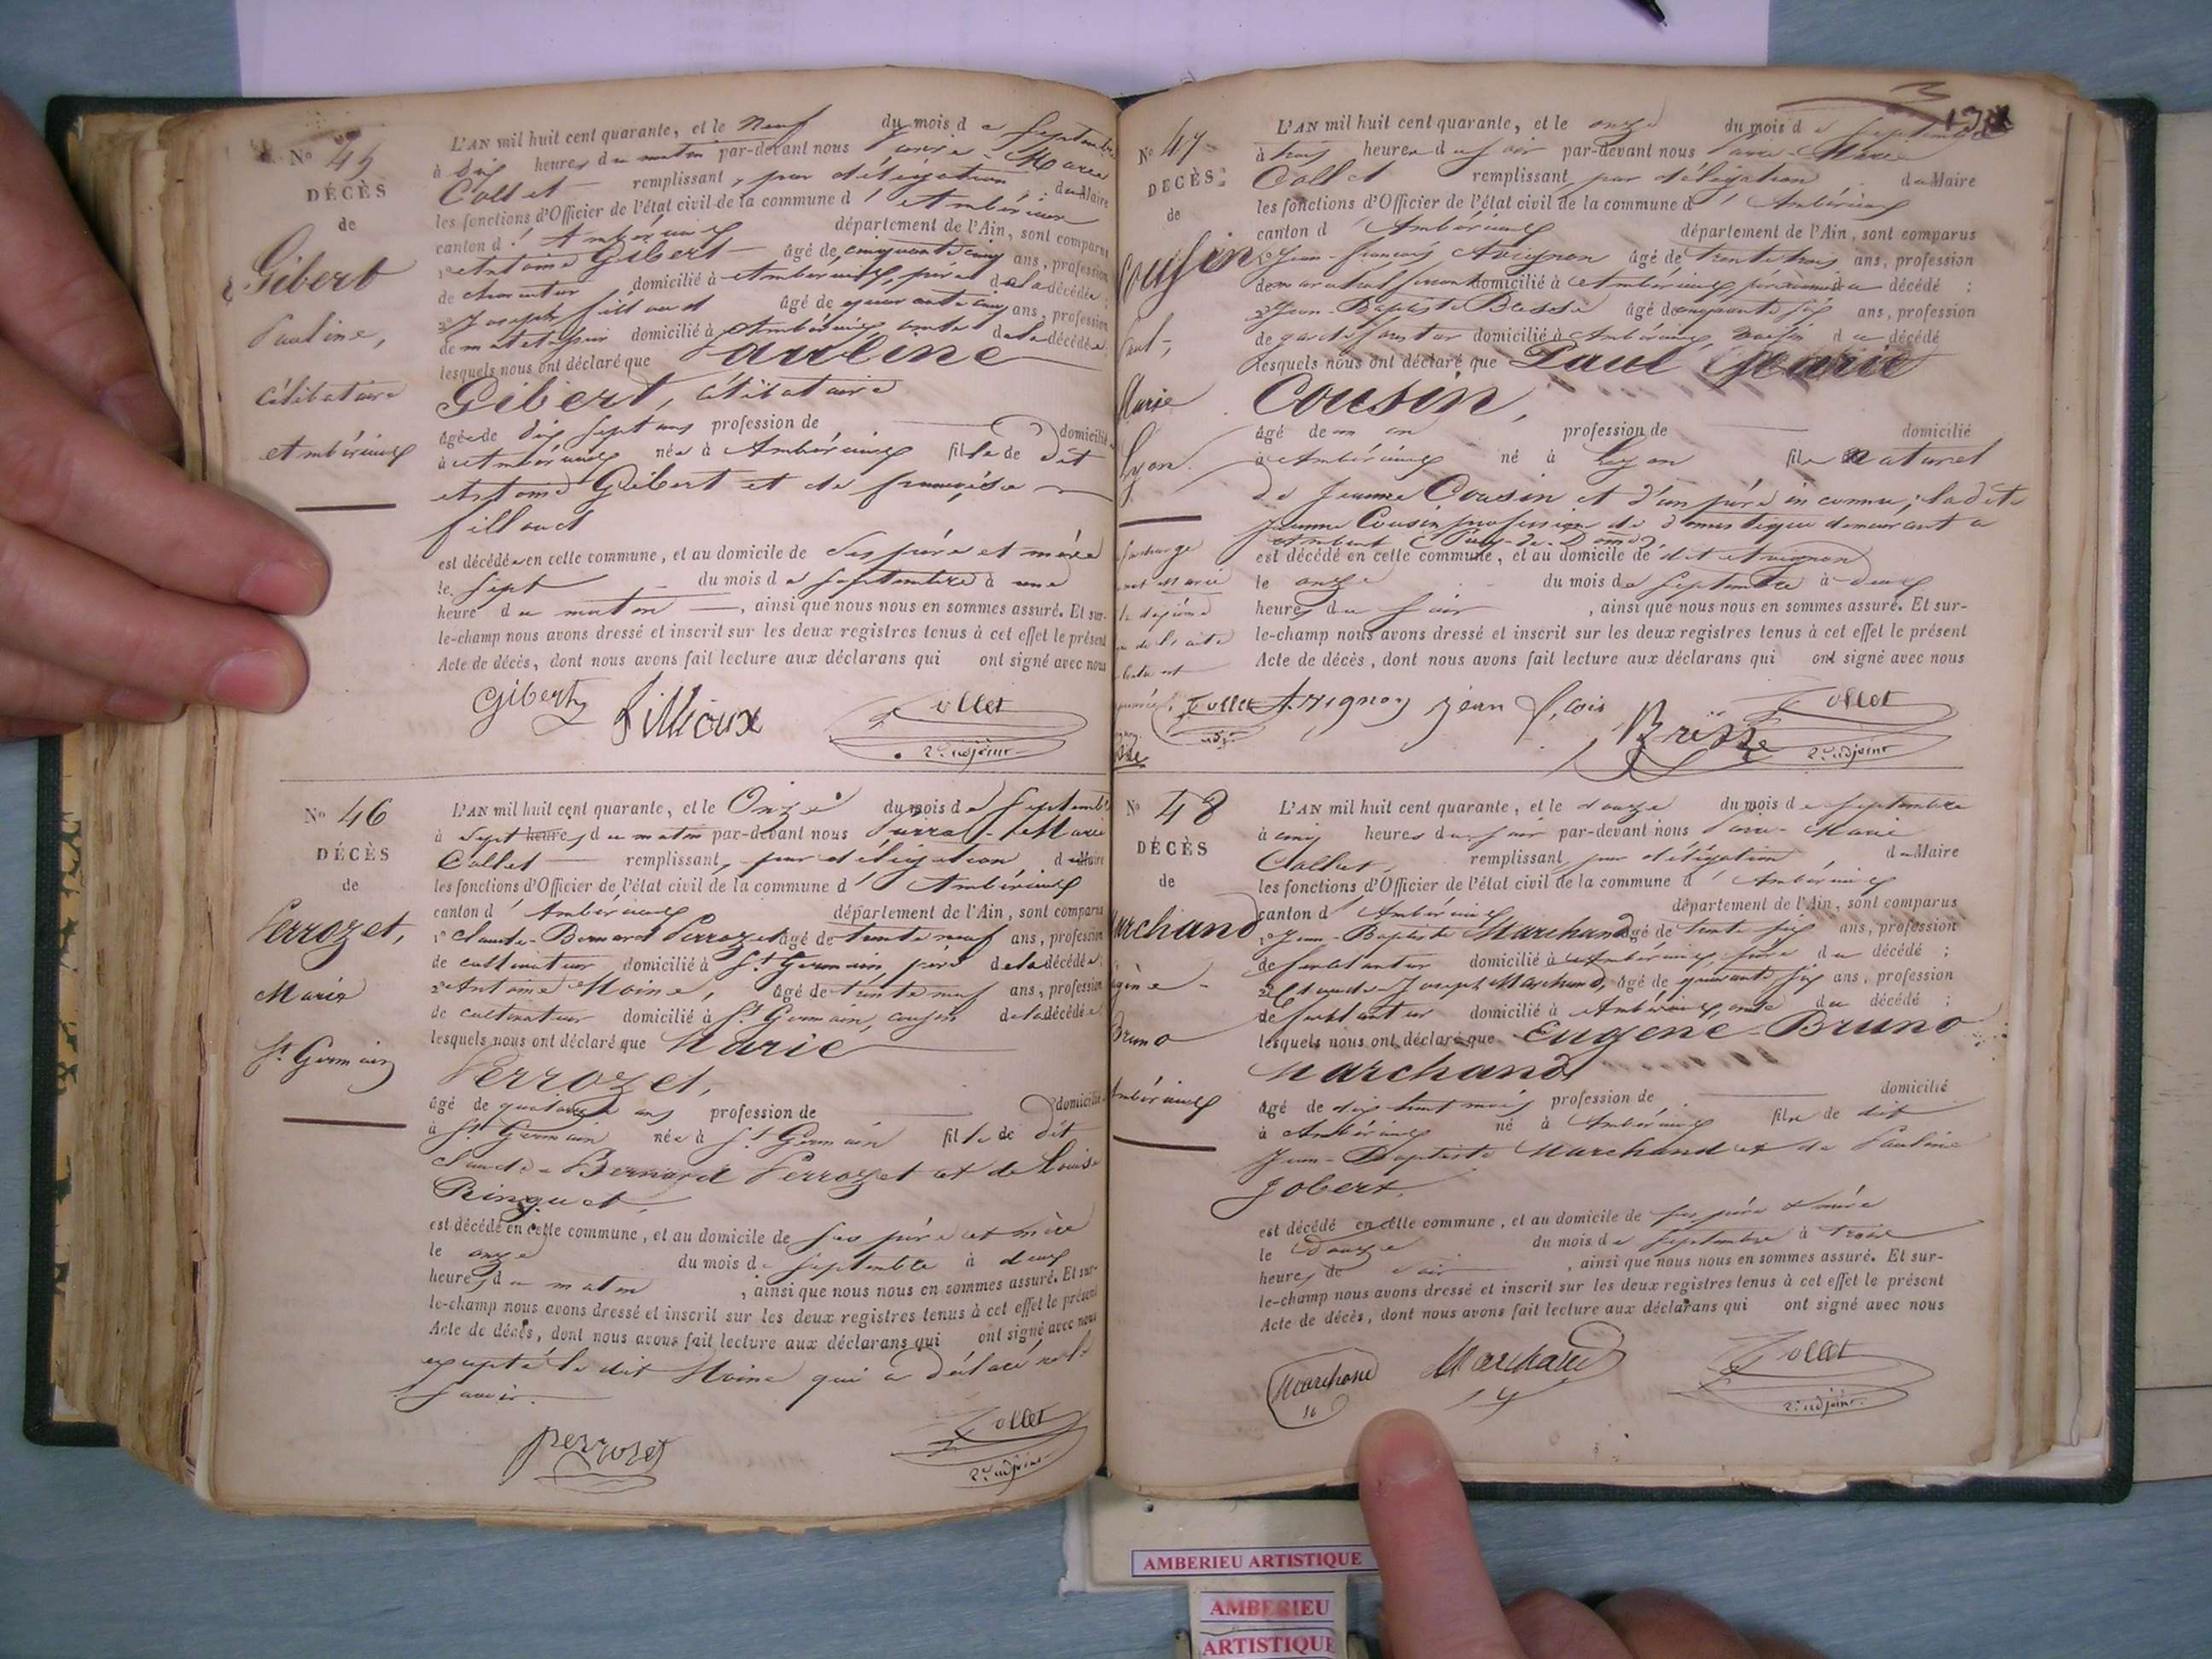 N° 45
DÉCÈS
de
Gibert
Pauline,
célibataire
Ambérieux
L'AN mil huit cent quarante, et le neuf du mois de Septembre
à dix heures du matin par-devant nous Pierre-Marie
Collet remplissant, par délégation, du Maire
les fonctions d'Officier de l'état civil de la commune d'Ambérieux
canton d'Ambérieux département de l'Ain, sont comparus
1° Antoine Gibert âgé de cinquante cinq ans, profession
de domicilié à Ambérieux, père de la décédée;
2° Joseph âgé de quarante cinq ans, profession
de domicilié à Ambérieux de la décédée;
lesquels nous ont déclaré que Pauline
Gibert, célibataire
âgée de dix sept ans profession de domiciliée
à Ambérieux née à Ambérieux fille de dit
Antoine Gibert et de françoise
filloud
est décédée en cette commune, et au domicile de ses père et mère
le sept du mois de septembre à une
heure du matin, ainsi que nous nous en sommes assuré. Et sur-
le-champ nous avons dressé et inscrit sur les deux registres tenus à cet effet le présent
Acte de décès, dont nous avons fait lecture aux déclarans qui ont signé avec nous
Gibert Fillioux Collet
2e adjoint
N° 46
DÉCÈS
de
Perrozet,
Marie
St Germain
L'AN mil huit cent quarante, et le Onze du mois de Septembre
à sept heures du matin par-devant nous Pierre-Marie
Collet remplissant, par délégation, du Maire
les fonctions d'Officier de l'état civil de la commune d'Ambérieux
canton d'Ambérieux département de l'Ain, sont comparus
1° Claude-Bernard Perrozet âgé de trente neuf ans, profession
de cultivateur domicilié à St Germain, père de la décédée;
2° Antoine Moine, âgé de trente neuf ans, profession
de cultivateur domicilié à St Germain, cousin de la décédée
lesquels nous ont déclaré que Marie
Perrozet,
âgé de ans profession de domicilié
à St Germain née à St Germain fille de dit
Claude Bernard Perrozet et de Louise
Ringuet,
est décédé en cette commune, et au domicile de ses père et mère
le onze du mois de septembre à deux
heures du matin, ainsi que nous nous en sommes assuré. Et sur-
le-champ nous avons dressé et inscrit sur les deux registres tenus à cet effet le présent
Acte de décès, dont nous avons fait lecture aux déclarans qui ont signé avec nous
excepté le dit Moine qui a déclaré ne le
savoir.
perrozet Collet
2e adjoint
N° 47
DÉCÈS
de
Cousin
Paul,
Marie
Lyon.
L'AN mil huit cent quarante, et le onze du mois de Septembre
à trois heures du soir par-devant nous Pierre-Marie
Collet remplissant, par délégation du Maire
les fonctions d'Officier de l'état civil de la commune d'Ambérieux
canton d'Ambérieux département de l'Ain, sont comparus
1° Jean-françois Avignon âgé de trente trois ans, profession
de maréchal ferrant domicilié à Ambérieux, du décédé;
2° Jean-Baptiste âgé de cinquante six ans, profession
de domicilié à Ambérieux, voisin du décédé
lesquels nous ont déclaré que Paul Marie
Cousin,
âgé de un an profession de domicilié
à Ambérieux né à Lyon fils naturel
de Jeanne Cousin et d'un père inconnu; ladite
Jeanne Cousin profession de domestique demeurant à
Ambert (Puy-de-Dôme)
est décédé en cette commune, et au domicile de dit Avignon
le onze du mois de septembre à deux
heures du soir, ainsi que nous nous en sommes assuré. Et sur-
le-champ nous avons dressé et inscrit sur les deux registres tenus à cet effet le présent
Acte de décès, dont nous avons fait lecture aux déclarans qui ont signé avec nous
Collet Avignon jean Collet
2e adjoint
N° 48
DÉCÈS
de
Marchand
Eugène-
Bruno
Ambérieux
L'AN mil huit cent quarante, et le douze du mois de septembre
à cinq heures du soir par-devant nous Pierre-Marie
Collet, remplissant, par délégation, du Maire
les fonctions d'Officier de l'état civil de la commune d'Ambérieux
canton d'Ambérieux département de l'Ain, sont comparus
1° Jean-Baptiste Marchand âgé de trente six ans, profession
de ferblantier domicilié à Ambérieux, père du décédé;
2° Claude-Joseph Marchand, âgé de quarante six ans, profession
de ferblantier domicilié à Ambérieux, oncle du décédé;
lesquels nous ont déclaré que Eugene-Bruno
Marchand
âgé de dix huit mois profession de domicilié
à Ambérieux né à Ambérieux fils de dit
Jean-Baptiste Marchand et de Pauline
Jobert.
est décédé en cette commune, et au domicile de ses père & mère
le Douze du mois de septembre à trois
heures de soir, ainsi que nous nous en sommes assuré. Et sur-
le-champ nous avons dressé et inscrit sur les deux registres tenus à cet effet le présent
Acte de décès, dont nous avons fait lecture aux déclarans qui ont signé avec nous
Marchand Marchand Collet
2e adjoint
AMBERIEU ARTISTIQUE
AMBERIEU
ARTISTIQUE